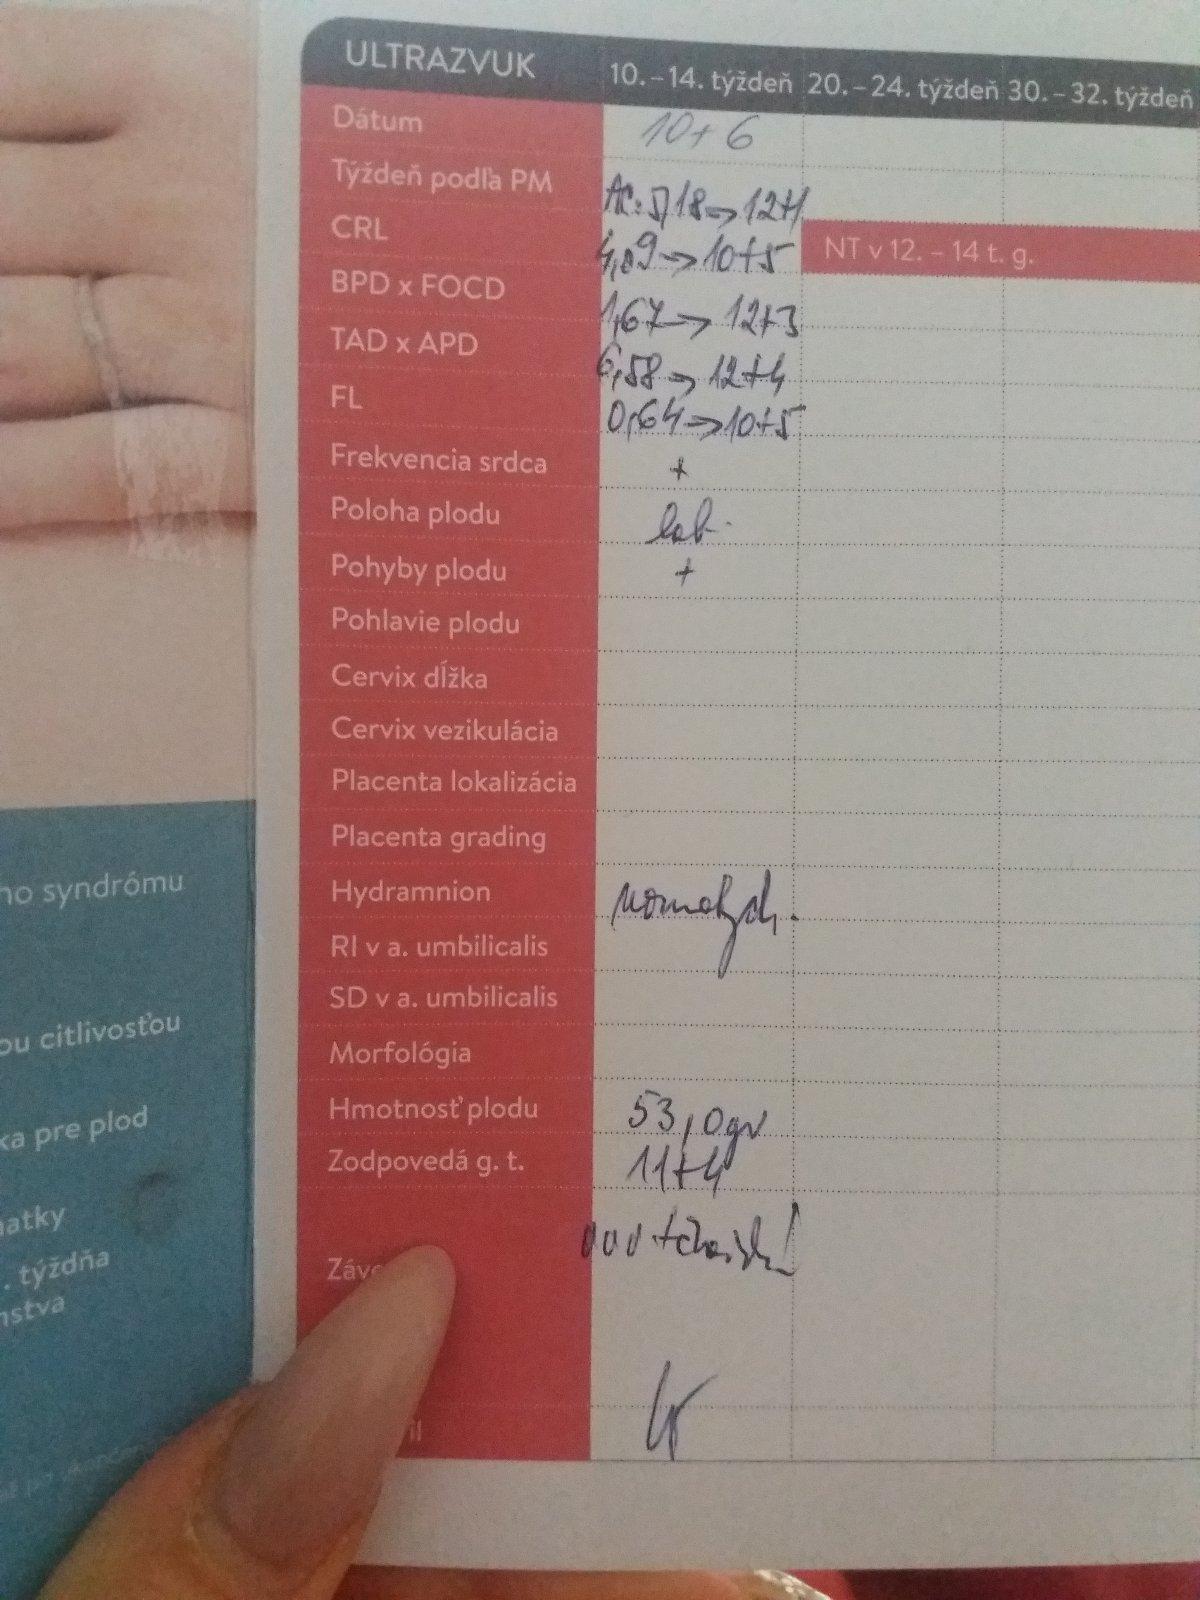 ULTRAZVUK 10. – 14. týždeň 20. – 24. týždeň 30. – 32. týždeň
Dátum 10+6
Týždeň podľa PM AC: 5,18 → 12+1
CRL 4,09 → 10+5 NT v 12. – 14 t. g.
BPD x FOCD 1,67 → 12+3
TAD x APD 6,58 → 12+4
FL 0,64 → 10+5
Frekvencia srdca +
Poloha plodu lab.
Pohyby plodu +
Pohlavie plodu
Cervix dĺžka
Cervix vezikulácia
Placenta lokalizácia
Placenta grading
Hydramnion
RI v a. umbilicalis
SD v a. umbilicalis
Morfológia
Hmotnosť plodu 53,0gr
Zodpovedá g. t. 11+4
ho syndrómu
ou citlivosťou
ka pre plod
matky
. týždňa
nstva